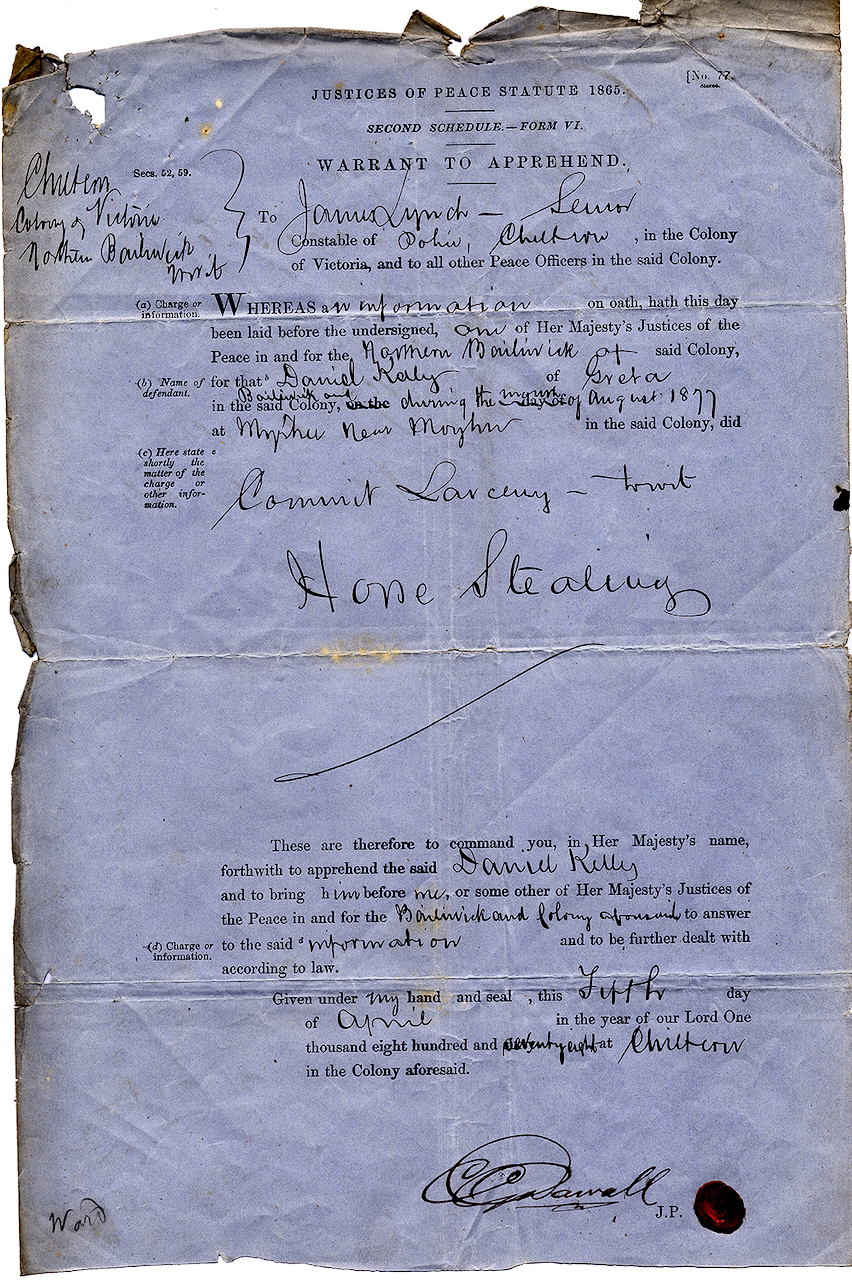 [No. 77.
Stereo.
JUSTICES OF PEACE STATUTE 1865.
SECOND SCHEDULE.—FORM VI.
WARRANT TO APPREHEND.
Secs. 52, 59.
Chiltern
Colony of Victoria
Northern Bailiwick
towit
To James Lynch — Senior
Constable of Police, Chiltern, in the Colony
of Victoria, and to all other Peace Officers in the said Colony.
(a) Charge or
information.
WHEREAS an information on oath, hath this day
been laid before the undersigned, one of Her Majesty's Justices of the
Peace in and for the Northern Bailiwick of said Colony,
(b) Name of
defendant.
for that b Daniel Kelly of Greta
in the said Bailiwick and Colony, on the during the month day of of August 1877
at Myrhee Near Moyhu in the said Colony, did
(c) Here state
shortly the
matter of the
charge or
other infor-
mation.
c
Commit Larceny — towit
Horse Stealing
These are therefore to command you, in Her Majesty's name,
forthwith to apprehend the said Daniel Kelly
and to bring him before me, or some other of Her Majesty's Justices of
the Peace in and for the Bailiwick and Colony aforesaid to answer
(d) Charge or
information.
to the said d information and to be further dealt with
according to law.
Given under my hand and seal, this Fifth day
of April in the year of our Lord One
thousand eight hundred and seventy eight at Chiltern
in the Colony aforesaid.
J.P.
Ward